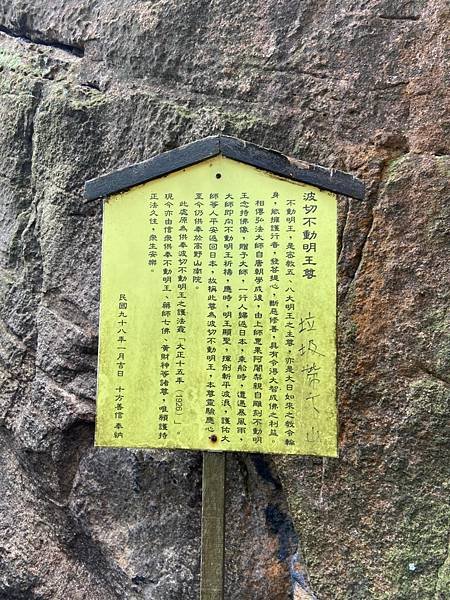 波切不動明王尊
不動明王，是密教五、八大明王之主尊，亦是大日如來之教令輪
身，能擁護行者，發菩提心，斷惡修善，具有令得大智成佛之利益。
相傳弘法大師自唐朝學成後，由上師惠果阿闍梨親自雕刻不動明
王念持佛像，贈予大師，一行人歸返日本，乘船時，遭遇暴風雨，
大師即向不動明王祈禱，應時，明王顯聖，揮劍斬平波浪，護佑大
師等人平安返回日本，故稱此尊為波切不動明王，本尊靈驗應心
至今仍供奉於高野山南院。
此處原為供奉波切不動明王之護法龕「大正十五年（1926）」。
現今亦由信衆供奉不動明王、藥師七佛、黃財神等諸尊，唯願護持
正法久住，衆生安樂。
民國九十八年一月吉日　十方善信奉納
垃圾帶下山